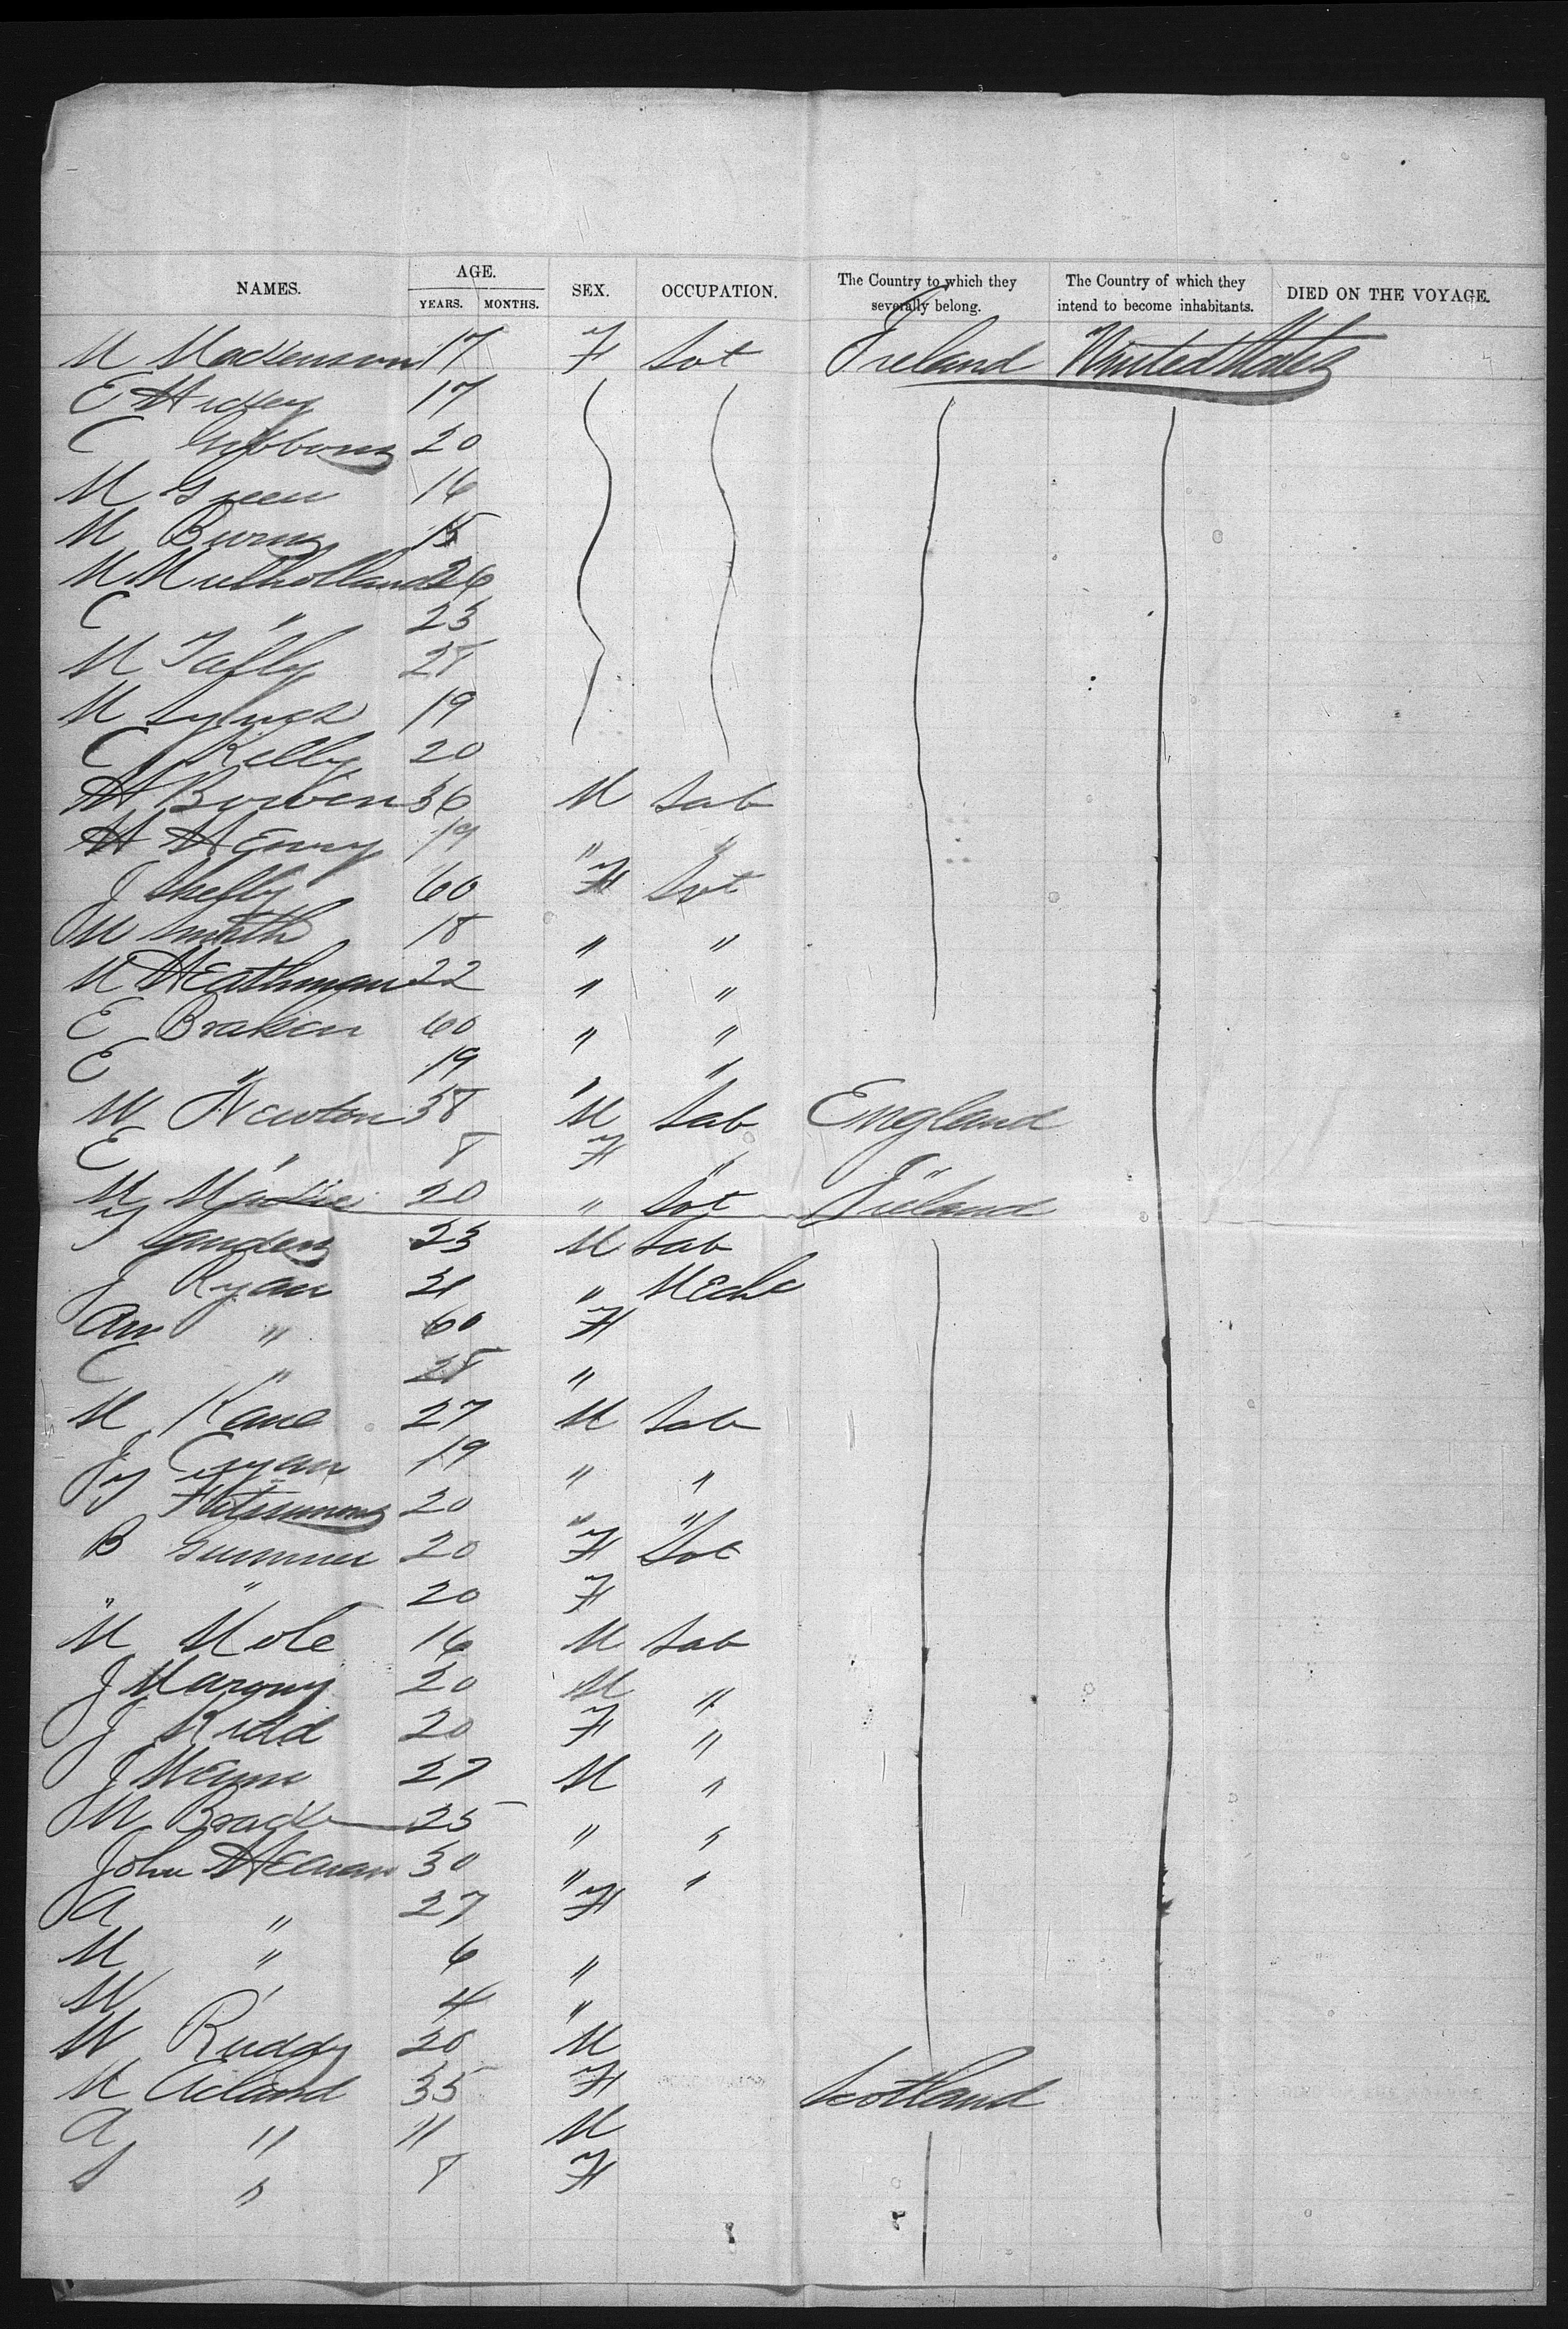 NAMES. AGE. YEARS. MONTHS. SEX. OCCUPATION. The Country to which they severally belong. The Country of which they intend to become inhabitants. DIED ON THE VOYAGE.
M Mackenson 17 F Svt Ireland United States
E Hickey 17
C Gibbons 20
M Green 16
M Burns 15
M Mulholland 26
C " 23
M 28
M 19
C Kelly 20
H 36 M Lab
H Henry 19 " "
J Skelly 60 F Svt
M Smith 18 " "
M Heathman 22 " "
E Braken 60 " "
E " 19 " "
W Newton 38 M Lab England
E " 8 F " "
M Mackie 20 " Svt Ireland
Sanders 23 M Lab
J Ryan 21 " Mech
Ann " 60 F
C " 28 "
M Kane 27 M Lab
J 19 " "
J Fitsimmons 20 " "
B 20 F Svt
" " 20 F
M Mole 16 M Lab
J 20 M "
J Kidd 20 F "
J 27 M "
M 25 " "
John Heenan 30 " "
A " 27 F
M " 6 "
M " 4 "
W Ruddy 20 M
M Acland 35 F Scotland
A " 11 M
S " 8 F